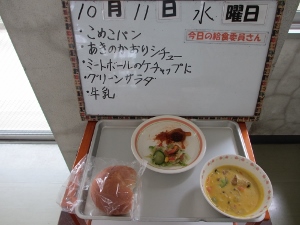 10月11日 水 曜日
今日の給食委員さん
・こめこパン
・あきのかおりシチュー
・ミートボールのケチャップに
・グリーンサラダ
・牛乳